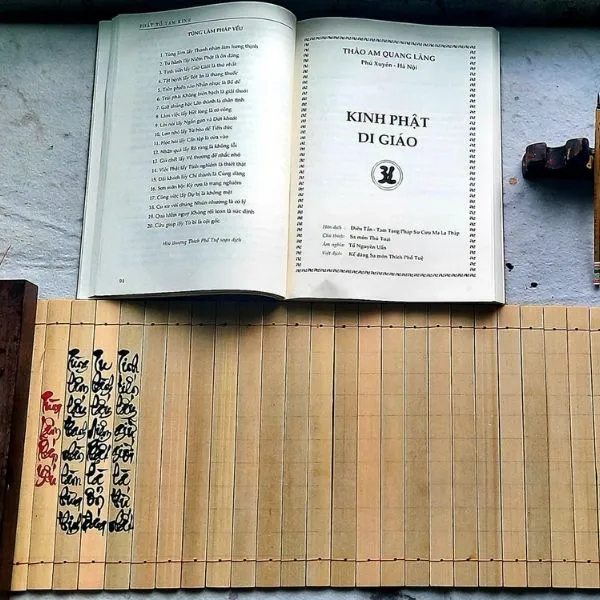 PHẬT TỔ TAM KINH
TÙNG LÂM PHÁP YẾU
1. Tùng lâm lấy Thanh nhàn làm hưng thịnh
2. Tu hành lấy Niệm Phật là ổn đáng
3. Tinh tiến lấy Giữ Giới là thứ nhất
4. Tật bệnh lấy bớt ăn là thang thuốc
5. Trên phiền não Nhẫn nhục là Bồ đề
6. Trái phải Không biện bạch là giải thoát
7. Giữ chúng bậc Lão thành là chân tình
8. Làm việc lấy hết lòng là có công
9. Lời nói lấy Ngắn gọn và Dứt khoát
10. Lớn nhỏ lấy Từ hòa để Tiến đức
11. Học hỏi lấy Cần tập là cửa vào
12. Nhân quả lấy Rõ ràng là không lỗi
13. Già chết lấy Vô thường để nhắc nhở
14. Việc Phật lấy Tinh nghiêm là thiết thật
15. Đãi khách lấy Chí thành là Cúng dàng
16. Sơn môn bậc Kỳ cựu là trang nghiêm
17. Công việc lấy Dự bị là không mệt
18. Cư xử với chúng Nhún nhường là có lý
19. Qua hiểm nguy Không rối loạn là sức định
20. Cứu giúp lấy Từ bi là cội gốc
Hòa thượng Thích Phổ Tuệ soạn dịch
THẢO AM QUANG LÃNG
Phú Xuyên - Hà Nội
KINH PHẬT
DI GIÁO
Hán dịch: Diêu Tần - Tam Tạng Pháp Sư Cưu Ma La Thập
Chú thích: Sa môn Thủ Toại
Âm nghĩa: Tổ Nguyên Uẩn
Việt dịch: Kể dàng Sa môn Thích Phổ Tuệ
Tùng lâm pháp yếu
Tùng lâm lấy thanh nhàn làm hưng thịnh
Tu hành lấy niệm Phật là ổn đáng
Tinh tiến lấy giữ giới là thứ nhất